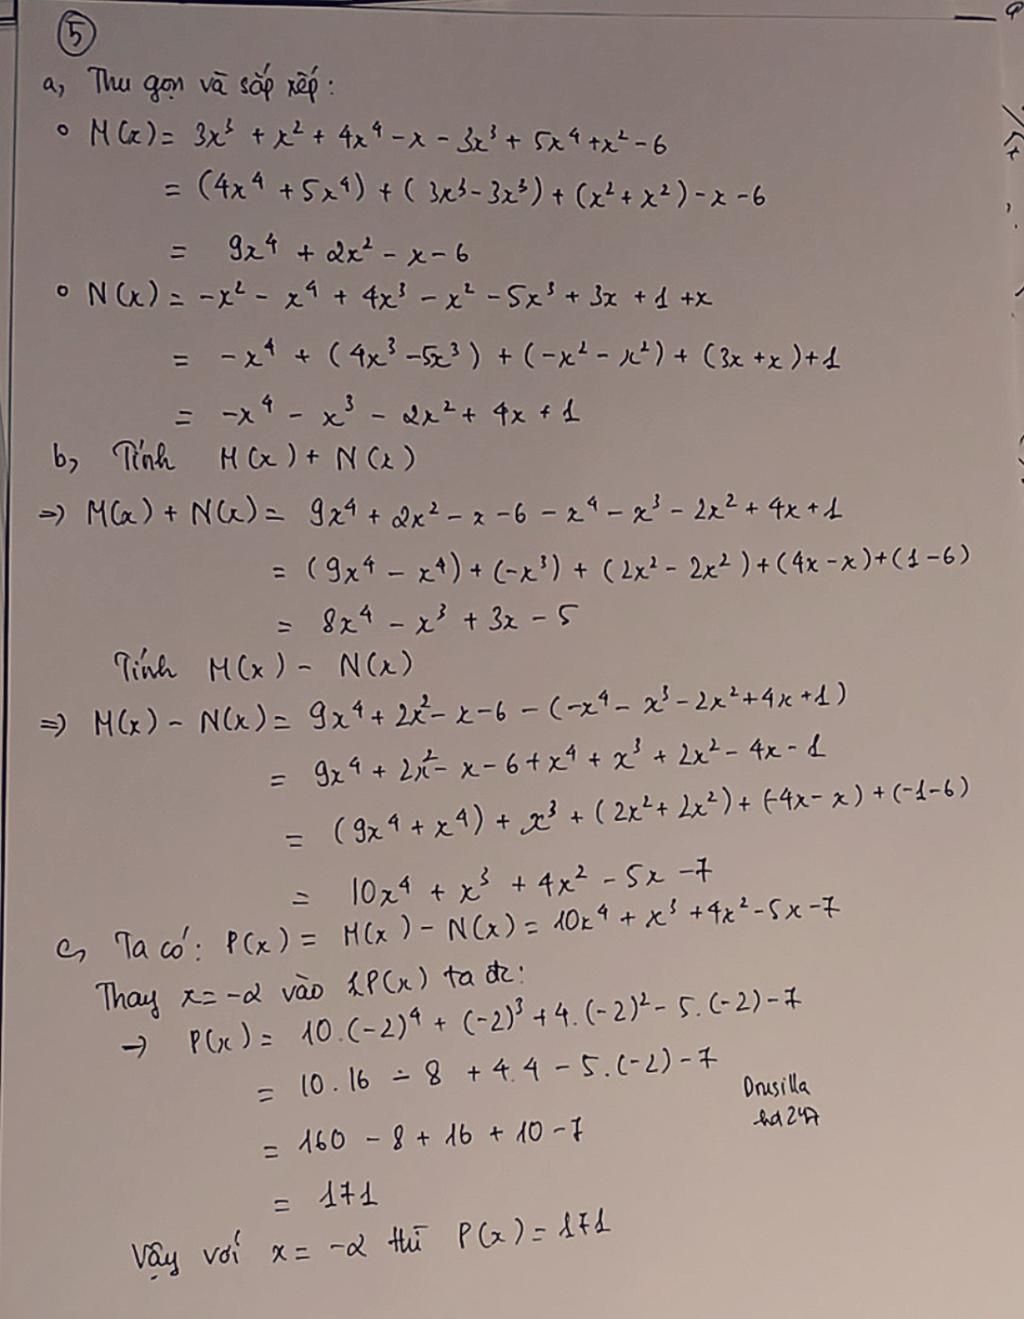 5
a, Thu gọn và sắp xếp:
o M(x) = 3x³ + x² + 4x⁴ - x - 3x³ + 5x⁴ + x² - 6
= (4x⁴ + 5x⁴) + (3x³ - 3x³) + (x² + x²) - x - 6
= 9x⁴ + 2x² - x - 6
o N(x) = -x² - x⁴ + 4x³ - x² - 5x³ + 3x + 1 + x
= -x⁴ + (4x³ - 5x³) + (-x² - x²) + (3x + x) + 1
= -x⁴ - x³ - 2x² + 4x + 1
b, Tính M(x) + N(x)
=> M(x) + N(x) = 9x⁴ + 2x² - x - 6 - x⁴ - x³ - 2x² + 4x + 1
= (9x⁴ - x⁴) + (-x³) + (2x² - 2x²) + (4x - x) + (1 - 6)
= 8x⁴ - x³ + 3x - 5
Tính M(x) - N(x)
=> M(x) - N(x) = 9x⁴ + 2x² - x - 6 - (-x⁴ - x³ - 2x² + 4x + 1)
= 9x⁴ + 2x² - x - 6 + x⁴ + x³ + 2x² - 4x - 1
= (9x⁴ + x⁴) + x³ + (2x² + 2x²) + (-4x - x) + (-1 - 6)
= 10x⁴ + x³ + 4x² - 5x - 7
c, Ta có: P(x) = M(x) - N(x) = 10x⁴ + x³ + 4x² - 5x - 7
Thay x = -2 vào P(x) ta đc:
→ P(x) = 10.(-2)⁴ + (-2)³ + 4.(-2)² - 5.(-2) - 7
= 10.16 - 8 + 4.4 - 5.(-2) - 7
= 160 - 8 + 16 + 10 - 7
= 171
Vậy với x = -2 thì P(x) = 171
Drusilla
hd247